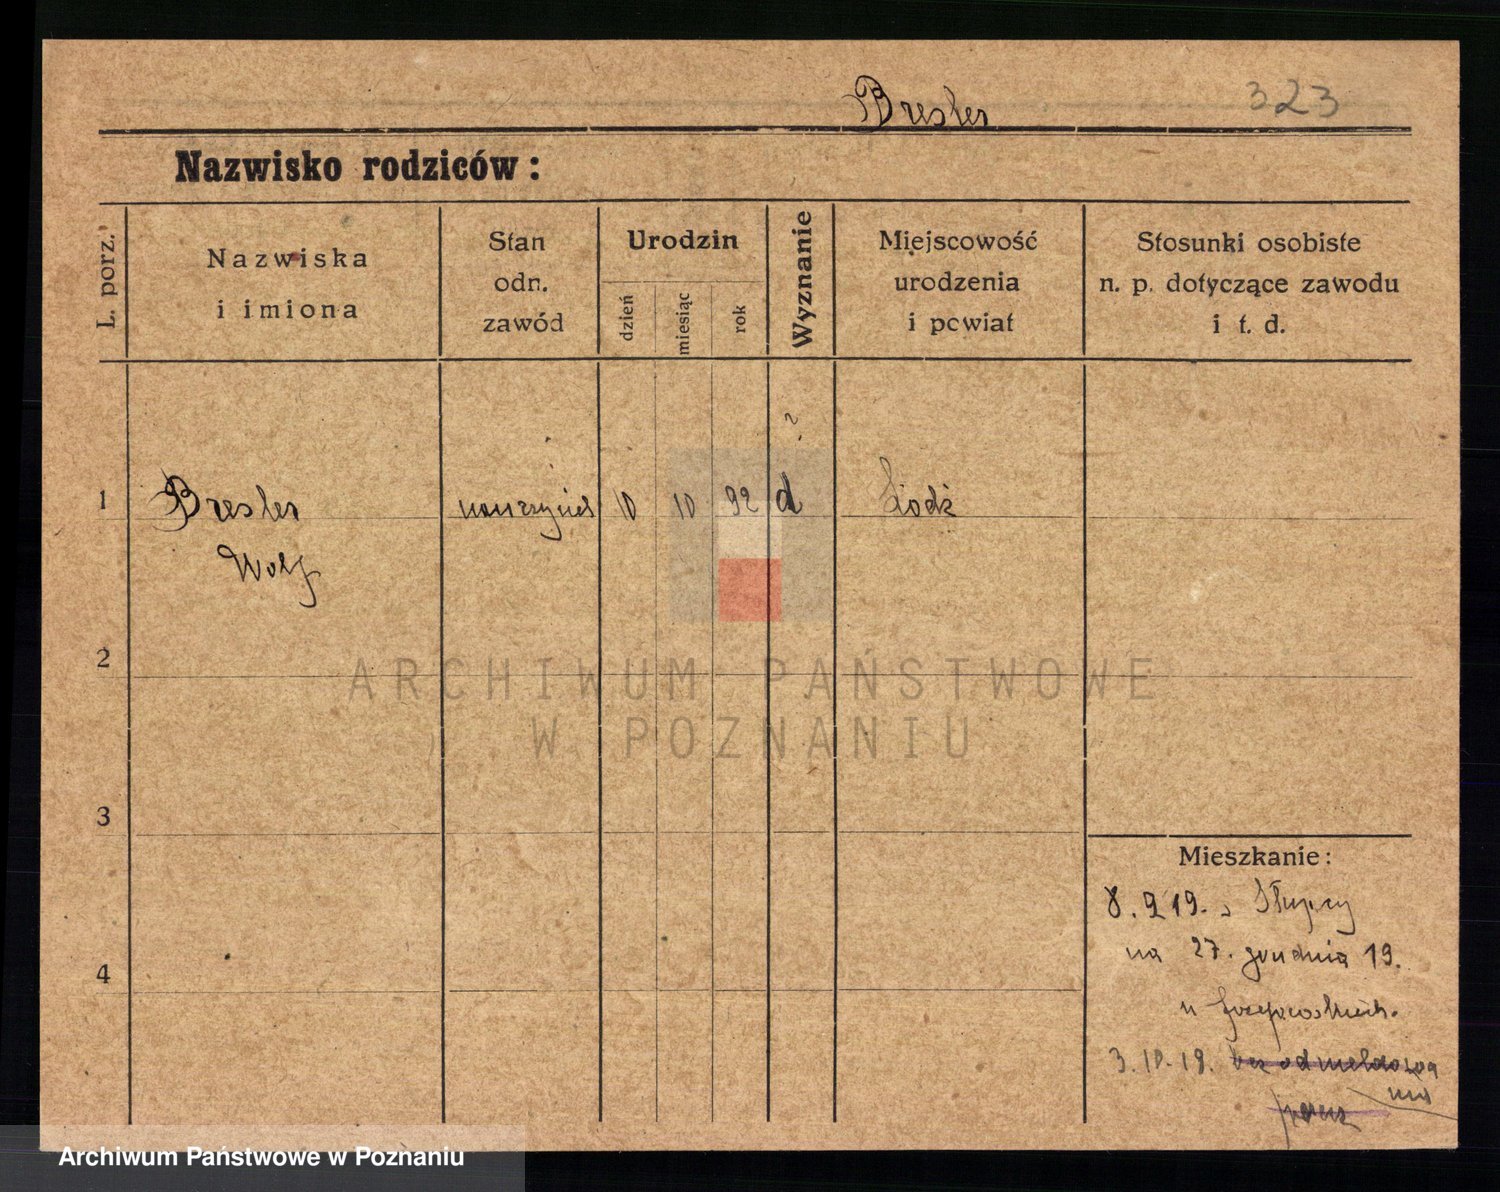 Bresler 323
Nazwisko rodziców:
L. porz.
Nazwiska
i imiona
Stan
odn.
zawód
Urodzin
dzień
miesiąc
rok
Wyznanie
Miejscowość
urodzenia
i powiat
Stosunki osobiste
n. p. dotyczące zawodu
i t. d.
?
1 Bresler nauczyciel 10 10 92 d Łódź
Wolf
2
ARCHIWUM PAŃSTWOWE
W POZNANIU
3
Mieszkanie:
8. 9 19. z Słupcy
4
na 27. grudnia 19.
u
3. 10. 19. bez odmeldowa
nia
Archiwum Państwowe w Poznaniu